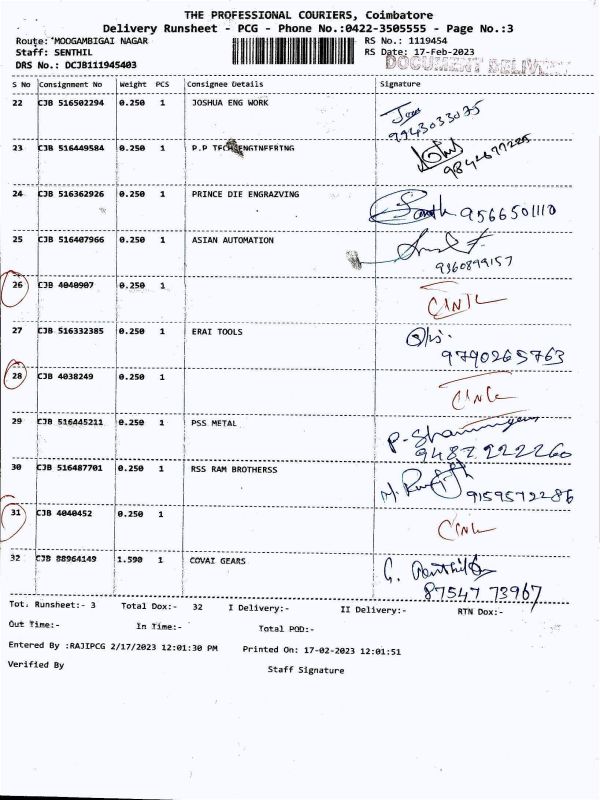 THE PROFESSIONAL COURIERS, Coimbatore
Delivery Runsheet - PCG - Phone No.:0422-3505555 - Page No.:3
Route: MOOGAMBIGAI NAGAR RS No.: 1119454
Staff: SENTHIL RS Date: 17-Feb-2023
DRS No.: DCJB111945403 DOCUMENT DELIVERY
S No Consignment No Weight PCS Consignee Details Signature
22 CJB 516502294 0.250 1 JOSHUA ENG WORK
9943033035
23 CJB 516449584 0.250 1 P.P TECH ENGINEERING
24 CJB 516362926 0.250 1 PRINCE DIE ENGRAZVING
9566501110
25 CJB 516407966 0.250 1 ASIAN AUTOMATION
9360899157
26 CJB 4040907 0.250 1
27 CJB 516332385 0.250 1 ERAI TOOLS
9790265763
28 CJB 4038249 0.250 1
29 CJB 516445211 0.250 1 PSS METAL
9487222260
30 CJB 516487701 0.250 1 RSS RAM BROTHERSS
9159572286
31 CJB 4040452 0.250 1
32 CJB 88964149 1.590 1 COVAI GEARS
87547 73967
Tot. Runsheet:- 3 Total Dox:- 32 I Delivery:- II Delivery:- RTN Dox:-
Out Time:- In Time:- Total POD:-
Entered By :RAJIPCG 2/17/2023 12:01:30 PM Printed On: 17-02-2023 12:01:51
Verified By Staff Signature